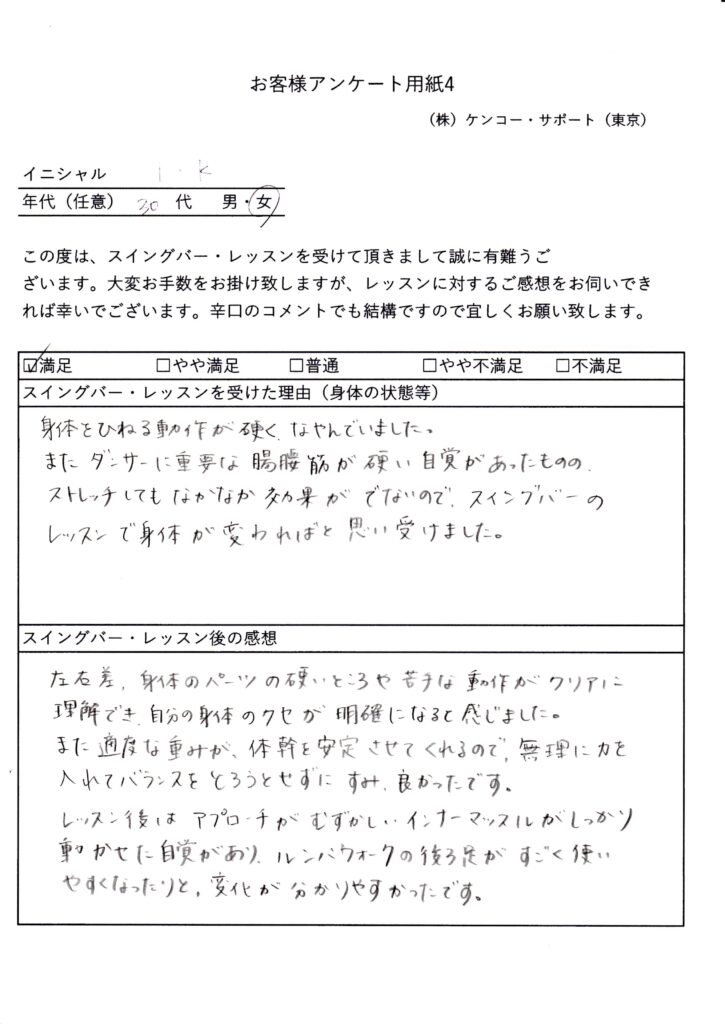 お客様アンケート用紙4
（株）ケンコー・サポート（東京）
イニシャル I・K
年代（任意） 30 代 男・女
この度は、スイングバー・レッスンを受けて頂きまして誠に有難うご
ざいます。大変お手数をお掛け致しますが、レッスンに対するご感想をお伺いでき
れば幸いでございます。辛口のコメントでも結構ですので宜しくお願い致します。
☑満足 □やや満足 □普通 □やや不満足 □不満足
スイングバー・レッスンを受けた理由（身体の状態等）
身体をひねる動作が硬く、なやんでいました。
またダンサーに重要な腸腰筋が硬い自覚があったものの、
ストレッチしてもなかなか効果がでないので、スイングバーの
レッスンで身体が変わればと思い受けました。
スイングバー・レッスン後の感想
左右差、身体のパーツの硬いところや苦手な動作がクリアに
理解でき、自分の身体のクセが明確になると感じました。
また適度な重みが、体幹を安定させてくれるので、無理に力を
入れてバランスをとろうとせずにすみ、良かったです。
レッスン後はアプローチがむずかしいインナーマッスルがしっかり
動かせた自覚があり、ルンバウォークの後ろ足がすごく使い
やすくなったりと、変化が分かりやすかったです。